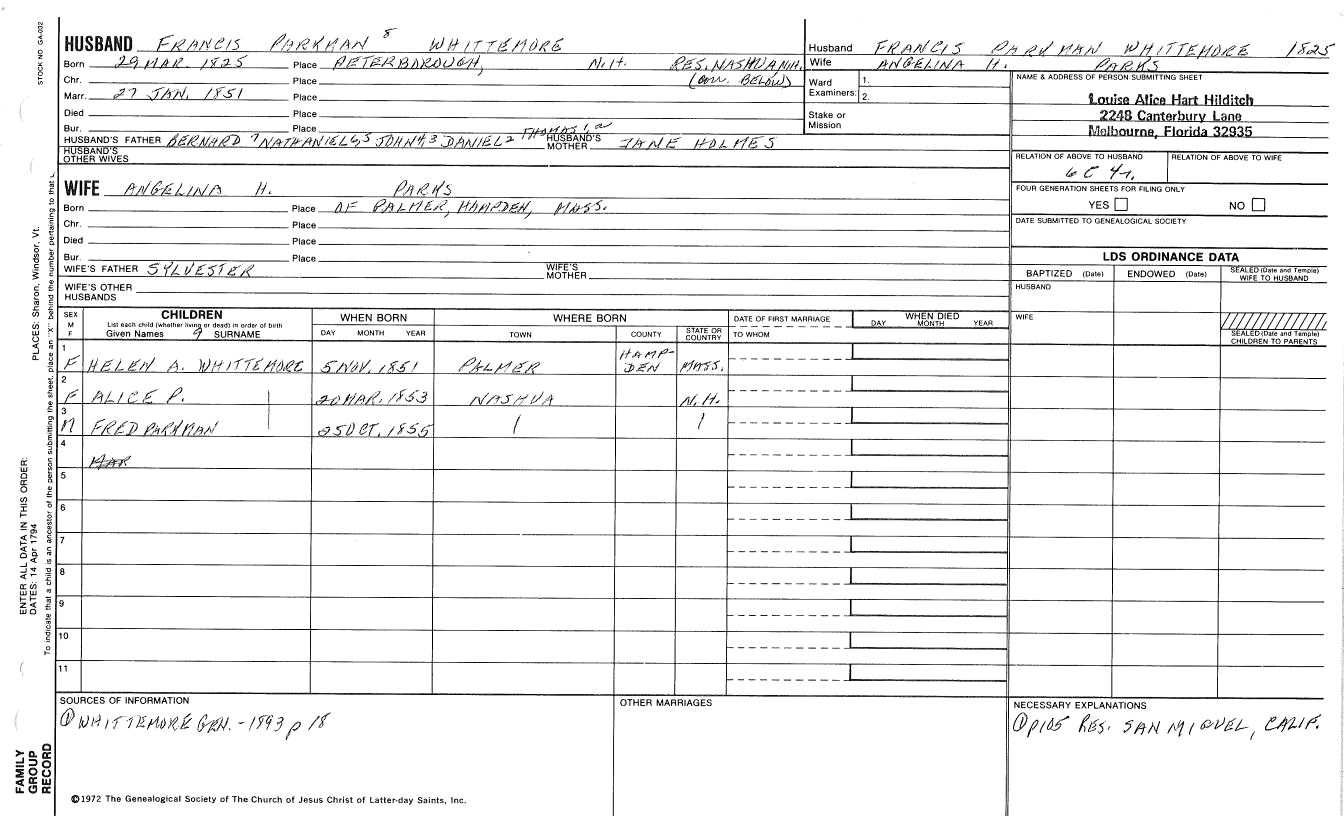 STOCK NO. GA-032
HUSBAND FRANCIS PARKMAN 8 WHITTEMORE
Born 29 MAR. 1825 Place PETERBOROUGH, N.H. RES. NASHUA N.H.
Chr. Place (BELOW)
Marr. 27 JAN. 1851 Place
Died Place
Bur. Place
HUSBAND'S FATHER BERNARD 7 NATHANIEL 6,5 JOHN 4,3 DANIEL 2 THOMAS 1, a HUSBAND'S MOTHER JANE HOLMES
HUSBAND'S OTHER WIVES
Husband FRANCIS PARKMAN WHITTEMORE 1825
Wife ANGELINA H. PARKS
Ward Examiners: 1.
2.
Stake or Mission
NAME & ADDRESS OF PERSON SUBMITTING SHEET
Louise Alice Hart Hilditch
2248 Canterbury Lane
Melbourne, Florida 32935
RELATION OF ABOVE TO HUSBAND RELATION OF ABOVE TO WIFE
6 C 4r.
FOUR GENERATION SHEETS FOR FILING ONLY
YES NO
DATE SUBMITTED TO GENEALOGICAL SOCIETY
WIFE ANGELINA H. PARKS
Born Place OF PALMER, HAMPDEN, MASS.
Chr. Place
Died Place
Bur. Place
WIFE'S FATHER SYLVESTER WIFE'S MOTHER
WIFE'S OTHER HUSBANDS
LDS ORDINANCE DATA
BAPTIZED (Date) ENDOWED (Date) SEALED (Date and Temple) WIFE TO HUSBAND
HUSBAND
WIFE
SEALED (Date and Temple) CHILDREN TO PARENTS
SEX M F CHILDREN WHEN BORN WHERE BORN DATE OF FIRST MARRIAGE WHEN DIED
List each child (whether living or dead) in order of birth
Given Names 9 SURNAME DAY MONTH YEAR TOWN COUNTY STATE OR COUNTRY TO WHOM DAY MONTH YEAR
1 F HELEN A. WHITTEMORE 5 NOV. 1851 PALMER HAMPDEN MASS.
2 F ALICE P. 20 MAR. 1853 NASHUA N.H.
3 M FRED PARKMAN 25 OCT. 1855
4 HAR
5
6
7
8
9
10
11
SOURCES OF INFORMATION
① WHITTEMORE GEN. - 1893 p 18
OTHER MARRIAGES
NECESSARY EXPLANATIONS
① p105 RES. SAN MIGUEL, CALIF.
©1972 The Genealogical Society of The Church of Jesus Christ of Latter-day Saints, Inc.
FAMILY
GROUP
RECORD
ENTER ALL DATA IN THIS ORDER:
DATES: 14 Apr 1794
PLACES: Sharon, Windsor, Vt.
To indicate that a child is an ancestor of the person submitting the sheet, place an "X" behind the number pertaining to that